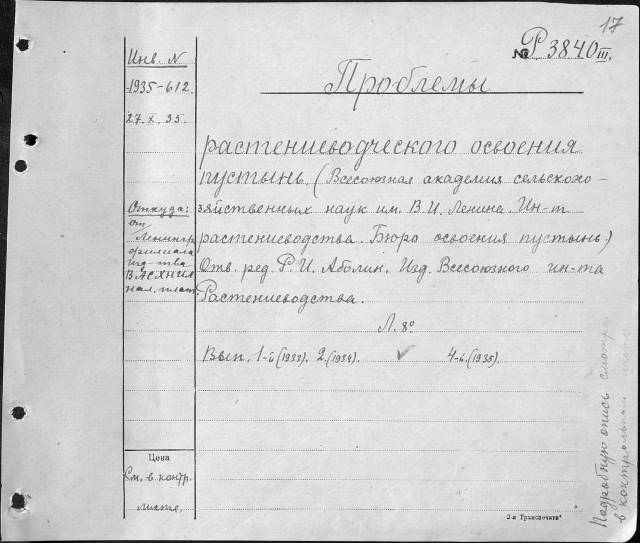 17
№ Р 3840 III.
Инв. N
1935-612.
27.X.35.
Проблемы
растениеводческого освоения
пустынь. (Всесоюзная академия сельскохо-
зяйственных наук им. В.И. Ленина. Ин-т
растениеводства. Бюро освоения пустынь.)
Отв. ред. Р.И. Аболин. Изд. Всесоюзного ин-та
Растениеводства.
Л. 8°
Вып. 1-й (1933). 2. (1934). ✓ 4-й. (1935).
Откуда:
от
Ленингр
филиала
изд-тва
ВАСХНИЛ
нал. плат.
Цена
См. в контр.
листе.
Подробную опись смотри
в контрольном листе
3-я Транспечать